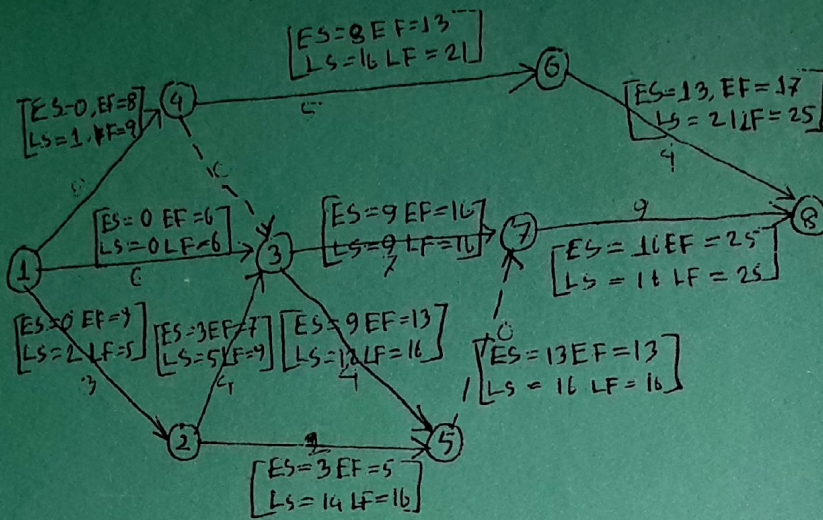 [ES=8 EF=13
LS=16 LF=21]
4
6
[ES=0, EF=8
LS=1, LF=9]
5
[ES=13, EF=17
LS=21 LF=25]
4
[ES=0 EF=6
LS=0 LF=6]
[ES=9 EF=16
LS=9 LF=16]
7
9
8
1
6
3
7
[ES=16 EF=25
LS=16 LF=25]
[ES=0 EF=3
LS=2 LF=5]
[ES=3 EF=7
LS=5 LF=9]
[ES=9 EF=13
LS=12 LF=16]
[ES=13 EF=13
LS=16 LF=16]
3
4
4
2
5
[ES=3 EF=5
LS=14 LF=16]